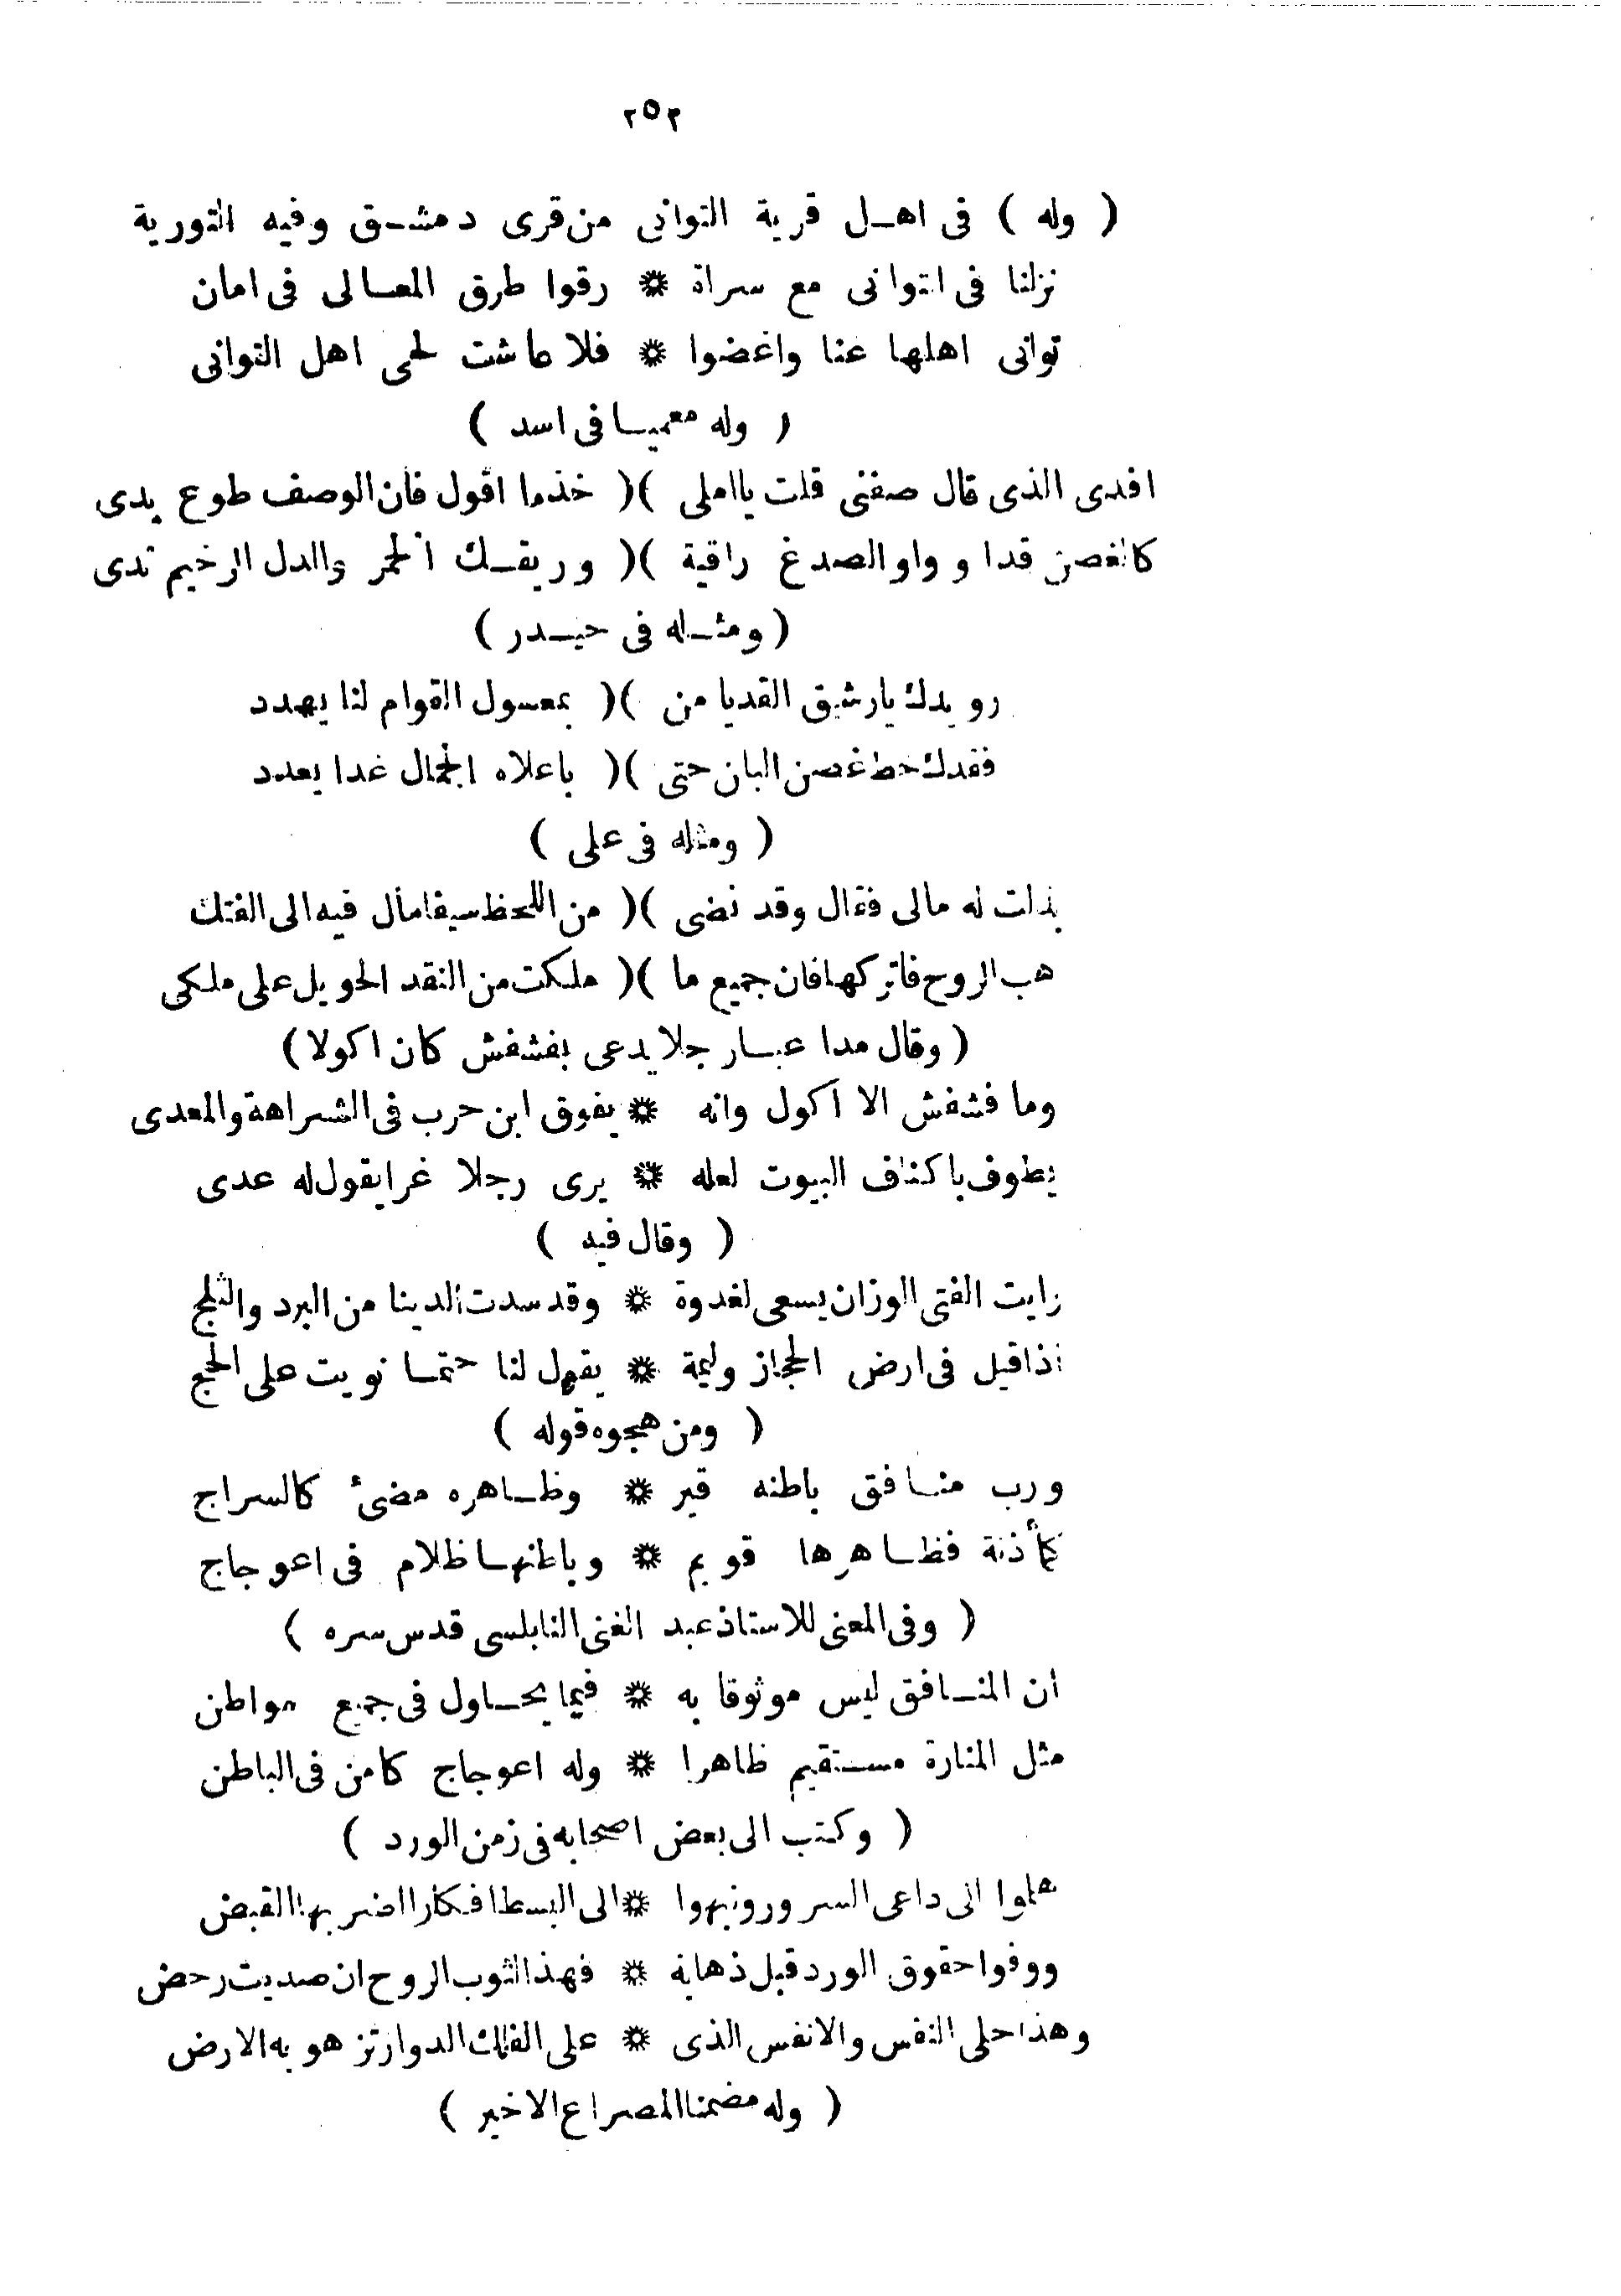 ٢٥٣
( وله ) فى اهل قرية التوانى من قرى دمشق وفيه التورية
نزلنا فى التوانى مع سراة * رقوا طرق المعالى فى امان
توانى اهلها عنا واغضوا * فلا عاشت لحى اهل التوانى
( وله معميا فى اسد )
افدى الذى قال صفنى قلت ياملى )( خذما اقول فان الوصف طوع يدى
كالغصن قدا و واو الصدغ راقية )( وريقك الخمر والدل الرخيم ندى
( ومثله فى حيدر )
رويدك يارشيق القد يا من )( بمعسول القوام لنا يهدد
فقدك خط غصن البان حتى )( باعلاه الجمال غدا يعدد
( ومثله فى على )
بذلت له مالى فقال وقد نضى )( من اللحظ سيفا مال فيه الى الفتك
هب الروح فاتركها فان جميع ما )( ملكت من النقد الحويل على ملكى
( وقال مداعبا رجلا يدعى بفشفش كان اكولا )
وما فشفش الا اكول وانه * يفوق ابن حرب فى الشراهة والمعدى
يطوف باكناف البيوت لعله * يرى رجلا غرا يقول له عدى
( وقال فيه )
رايت الفتى الوزان يسعى لغدوة * وقد سدت الدينا من البرد والثلج
اذا قيل فى ارض الحجاز وليمة * يقول لنا حتما نويت على الحج
( ومن هجوه قوله )
ورب منافق باطنه قير * وظاهره مضئ كالسراج
كمأذنة فظاهرها قويم * وباطنها ظلام فى اعوجاج
( وفى المعنى للاستاذ عبد الغنى النابلسى قدس سره )
ان المنافق ليس موثوقا به * فيما يحاول فى جميع مواطن
مثل المنارة مستقيم ظاهرا * وله اعوجاج كامن فى الباطن
( وكتب الى بعض اصحابه فى زمن الورد )
هلموا الى داعى السرور ونبهوا * الى البسط افكارا اضر بها القبض
ووفوا حقوق الورد قبل ذهابه * فهذا لثوب الروح ان صديت رحض
وهذا حلى النفس والانفس الذى * على الفلك الدوار تزهو به الارض
( وله مضمنا المصراع الاخير )